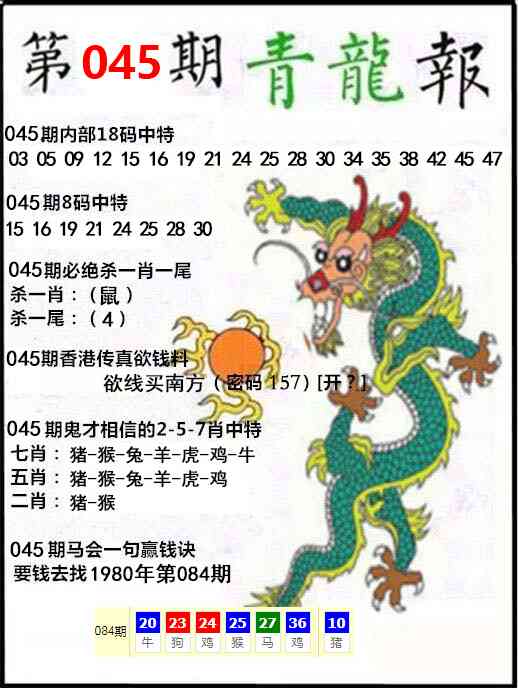 第045期青龍報
045期内部18码中特
03 05 09 12 15 16 19 21 24 25 28 30 34 35 38 42 45 47
045期8码中特
15 16 19 21 24 25 28 30
045期必绝杀一肖一尾
杀一肖：（鼠）
杀一尾：（4）
045期香港传真欲钱料
欲线买南方（密码157）[开？]
045期鬼才相信的2-5-7肖中特
七肖：猪-猴-兔-羊-虎-鸡-牛
五肖：猪-猴-兔-羊-虎-鸡
二肖：猪-猴
045期马会一句赢钱诀
要钱去找1980年第084期
084期 20 23 24 25 27 36 10
牛 狗 鸡 猴 马 鸡 猪